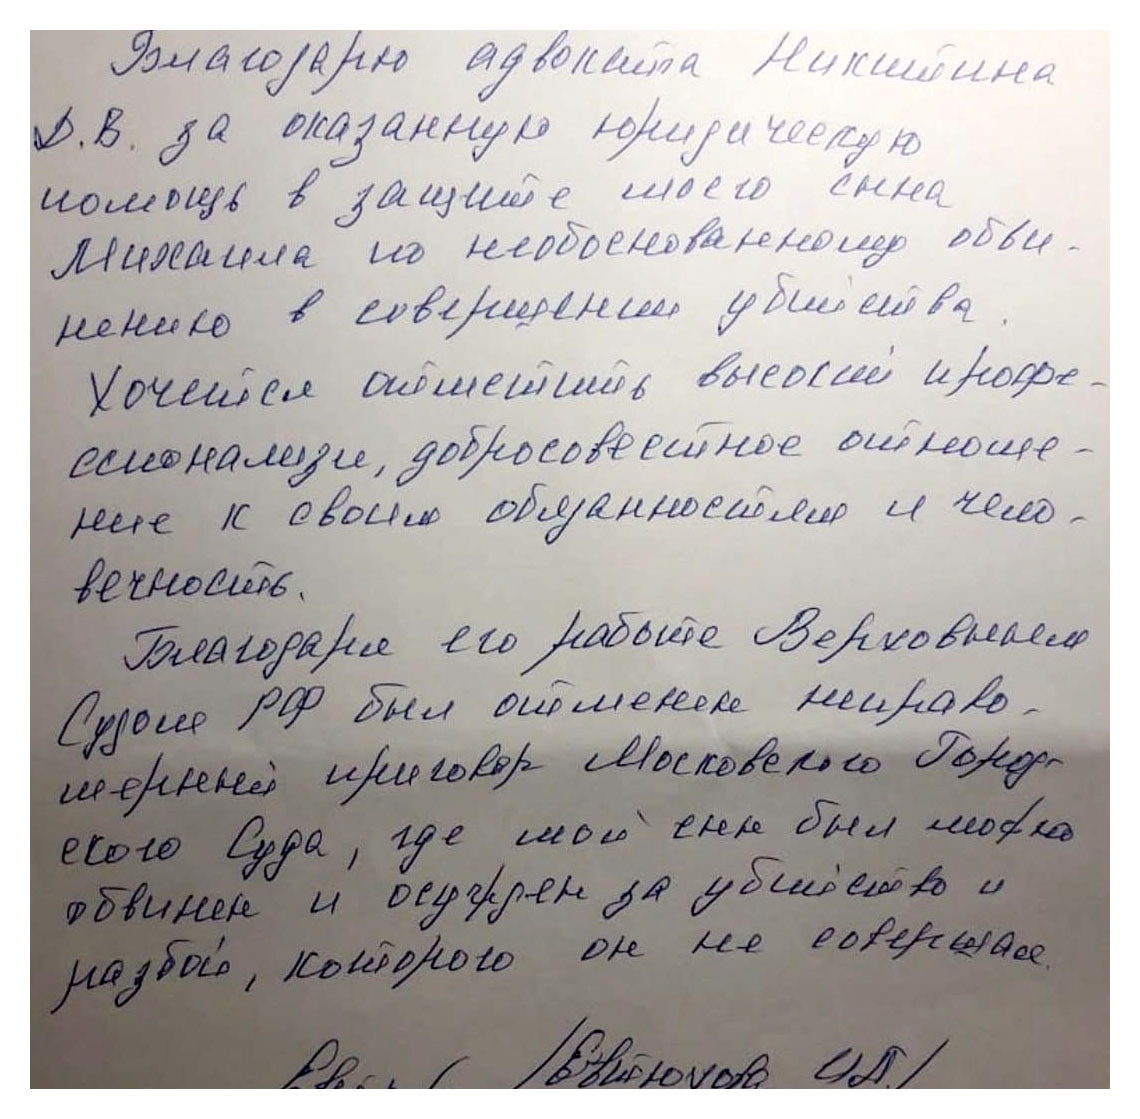 Благодарю адвоката Никитина
Д.В. за оказанную юридическую
помощь в защите моего сына
Михаила по необоснованному обви-
нению в совершении убийства.
Хочется отметить высокий профе-
ссионализм, добросовестное отноше-
ние к своим обязанностям и чело-
вечность.
Благодаря его работе Верховным
Судом РФ был отменен неправо-
мерный приговор Московского Город-
ского Суда, где мой сын был ложно
обвинен и осужден за убийство и
разбой, которого он не совершал.
/Евтюхова